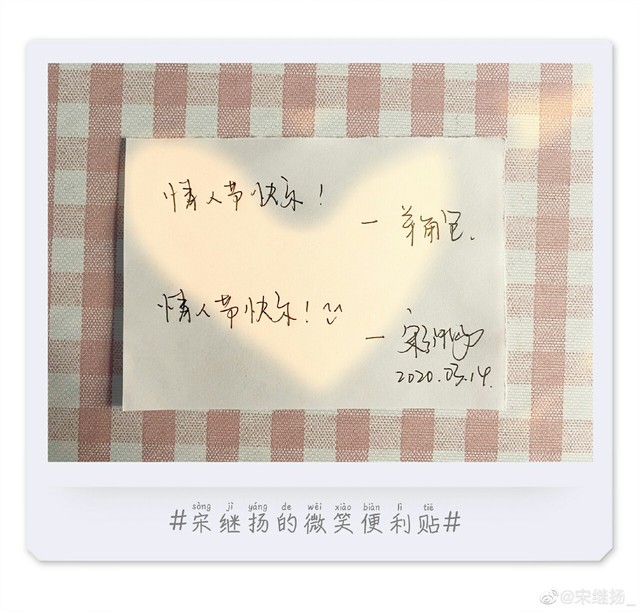 情人节快乐！
— 羊角包.
情人节快乐！
— 宋继扬
2020.03.14.
sòng jì yáng de wēi xiào biàn lì tiē
#宋继扬的微笑便利贴#
@宋继扬_